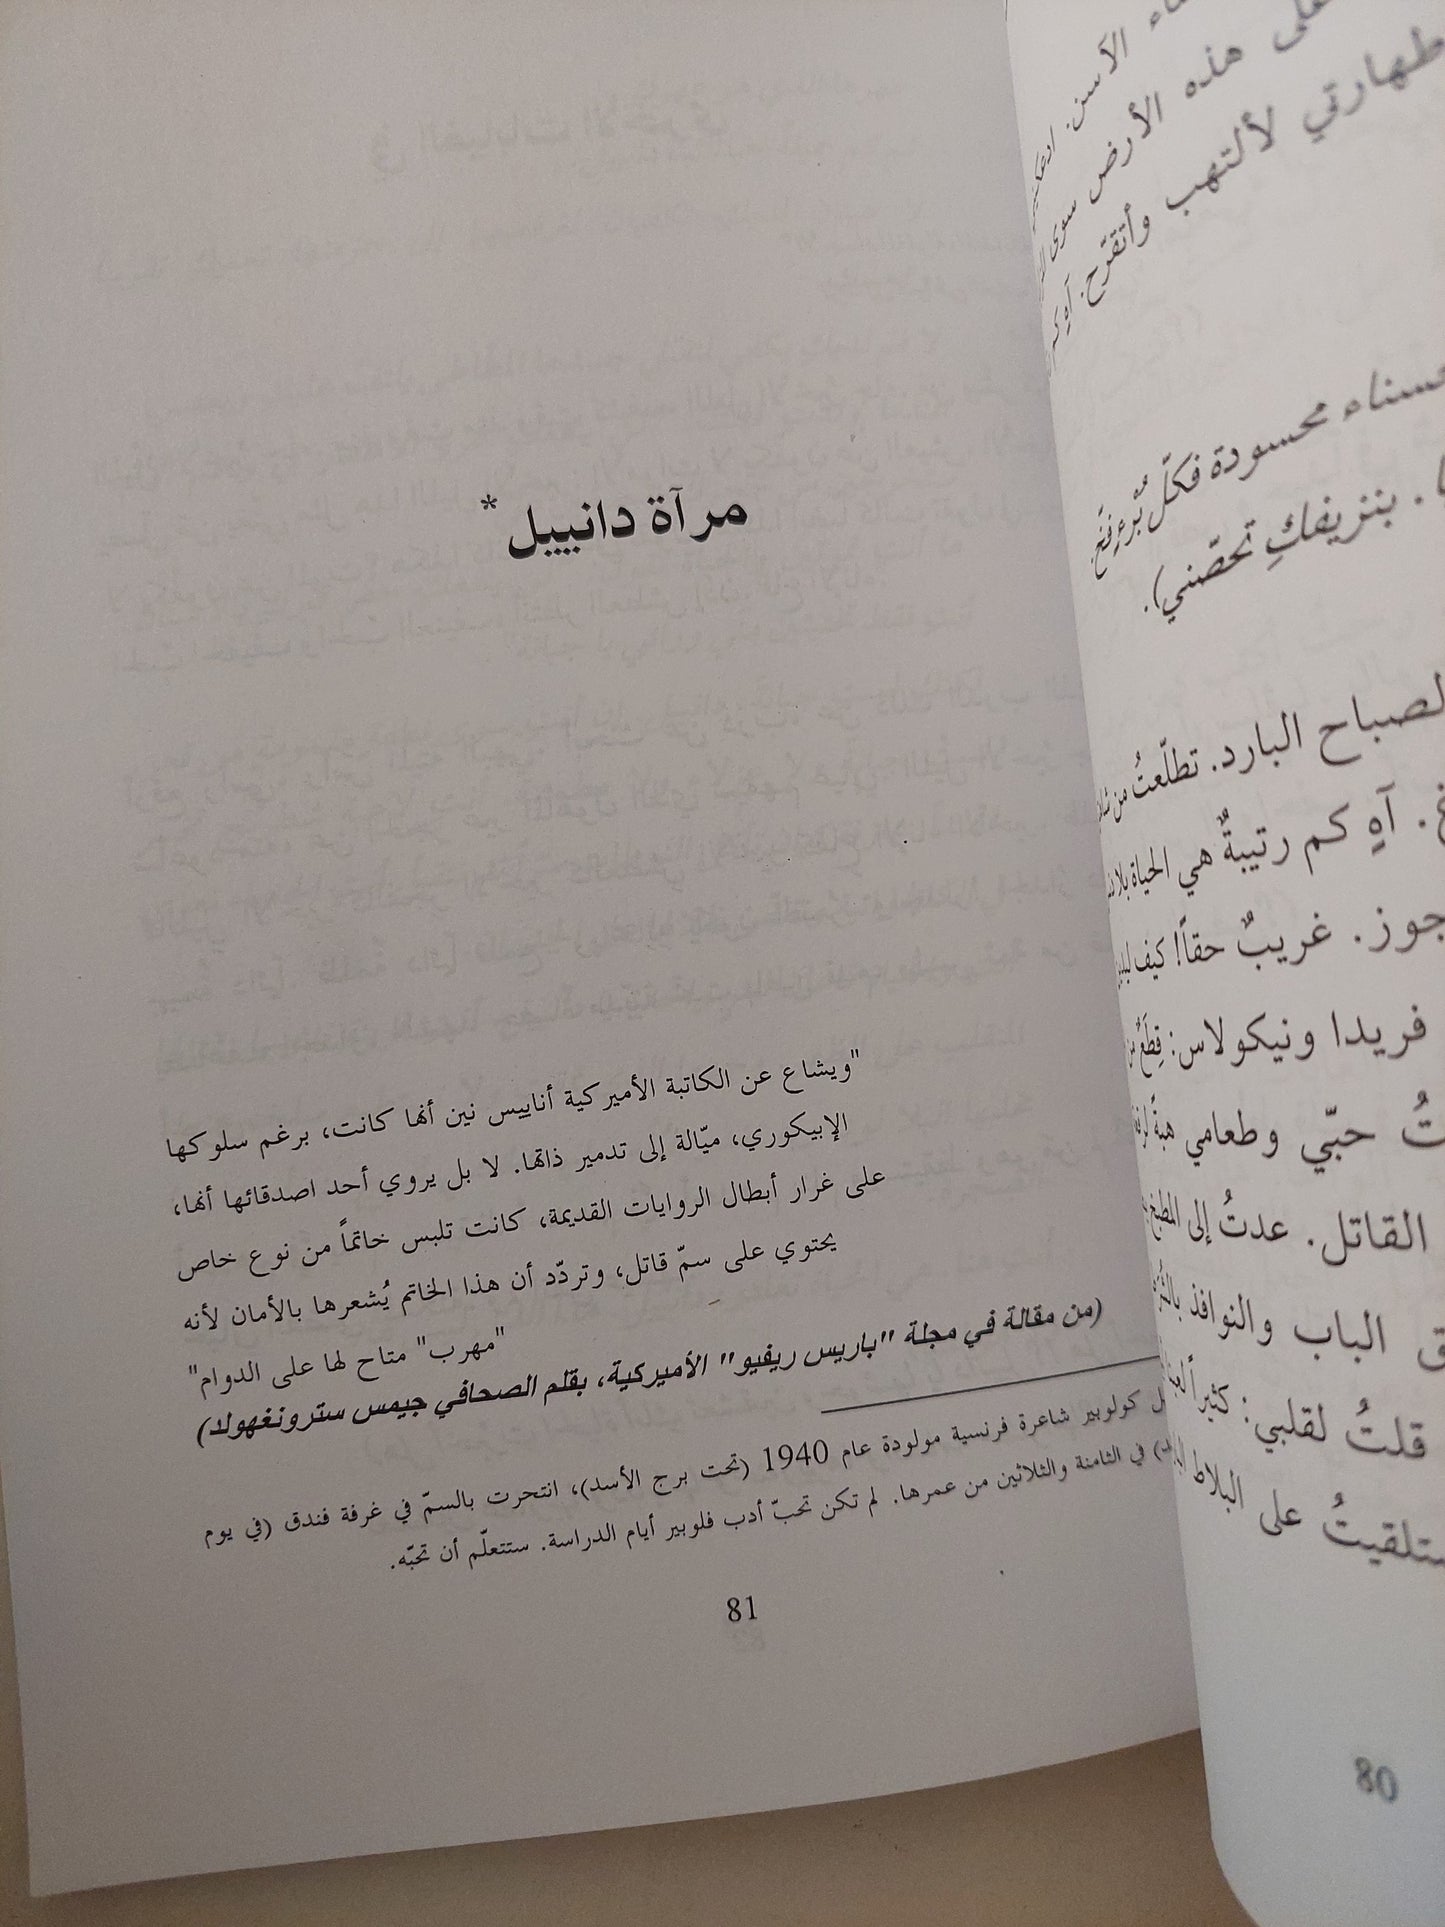 الآسن.
على هذه الأرض سوى
طهارتي لألتهب وأتقرّح. آهِ كم
حسناء محسودة فكلّ بُرْءٍ فخّ.
بنزيفكِ تحصّنني).
لصباح البارد. تطلّعتُ من
آهٍ كم رتيبةٌ هي الحياة بلا
جوز. غريبٌ حقاً! كيف
فريدا ونيكولاس: قِطَعٌ من
تُ حبّي وطعامي هبةً
القاتل. عدتُ إلى المطبخ
ق الباب والنوافذ
قلتُ لقلبي: كثيراً
ستلقيتُ على البلاط
80
مرآة دانييل *
"ويشاع عن الكاتبة الأميركية أناييس نين أنها كانت، برغم سلوكها
الإبيكوري، ميّالة إلى تدمير ذاتها. لا بل يروي أحد اصدقائها أنها،
على غرار أبطال الروايات القديمة، كانت تلبس خاتماً من نوع خاص
يحتوي على سمّ قاتل، وتردّد أن هذا الخاتم يُشعرها بالأمان لأنه
"مهرب" متاح لها على الدوام"
(من مقالة في مجلة "باريس ريفيو" الأميركية، بقلم الصحافي جيمس سترونغهولد)
ل كولوبير شاعرة فرنسية مولودة عام 1940 (تحت برج الأسد)، انتحرت بالسمّ في غرفة فندق (في يوم
في الثامنة والثلاثين من عمرها. لم تكن تحبّ أدب فلوبير أيام الدراسة. ستتعلّم أن تحبّه.
81